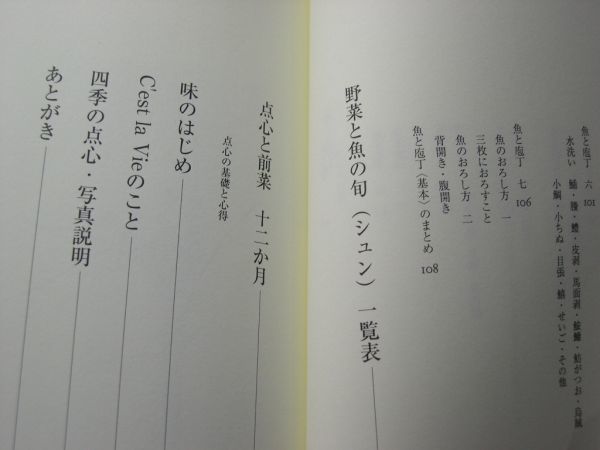 魚と庖丁 六 101
水洗い 鯒・鰧・鱧・皮剥・馬面剥・鮟鱇・鮎がつお・烏賊
小鯛・小ちぬ・目張・鱚・せいご・その他
魚と庖丁 七 106
魚のおろし方 一
三枚におろすこと
魚のおろし方 二
背開き・腹開き
魚と庖丁〈基本〉のまとめ 108
野菜と魚の旬（シュン）一覧表
点心と前菜 十二か月
点心の基礎と心得
味のはじめ
C'est la Vieのこと
四季の点心・写真説明
あとがき